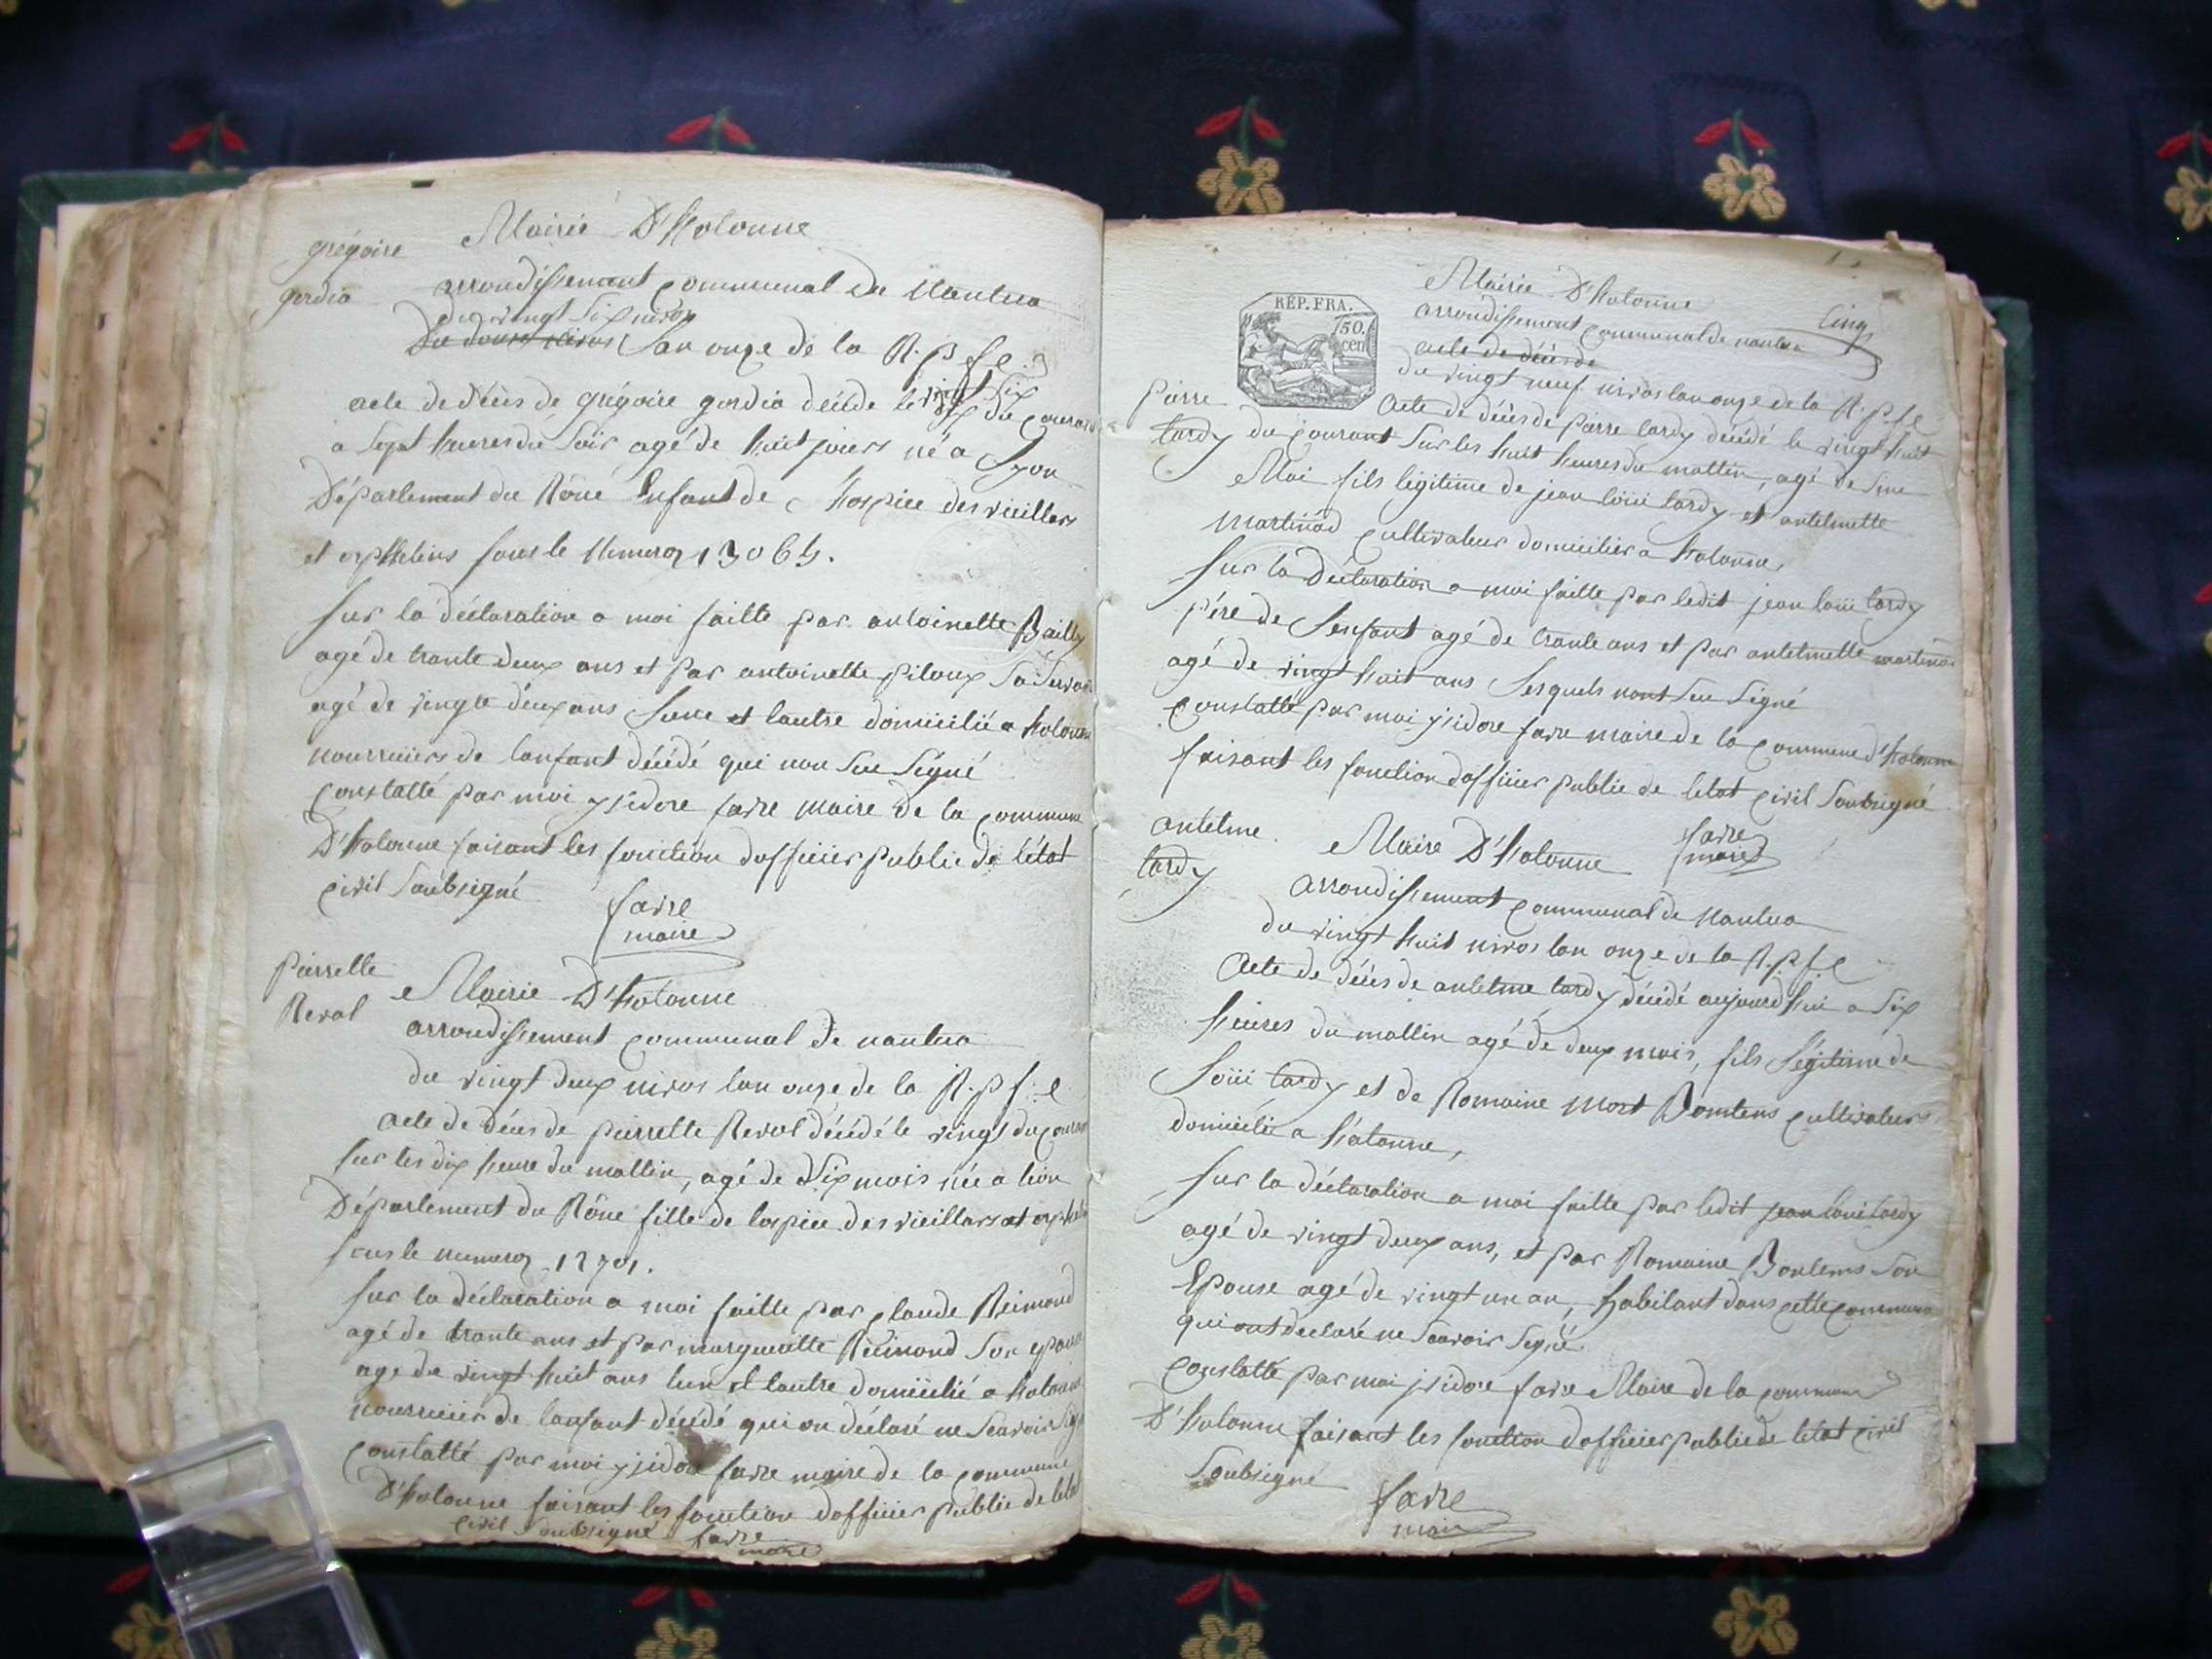 grégoire
gordia
Mairie D'hotonne
arrondissement communal de Nantua
du vingt six nivos
Du douse nivos lan onze de la R. p f. e.
acte de décès de grégoire gordia décéde le vingt six du courant
a sept heures du soir agé de huit jours né a Lyon
Département du Rône Enfant de hospice des vieillars
et orphelins sous le Numero 13064.
sur la déclaration a moi faitte par antoinette Bailly
agé de trante deux ans et par antoinette pitoux
agé de vingte deux ans lune et lautre domicilié a hotonne
nourriciers de lanfant décédé qui non Seu Signé
constatté par moi ysidore favre maire de la commune
D'hotonne faisant les fonction dofficier public de létat
civil Soubsigné
favre
maire
pierrette
Reval
Mairie D'hotonne
arrondissement communal de nantua
du vingt deux nivos lan onze de la R. p f. e
acte de décès de pierrette Reval décédé le vingt du courant
sur les dix heure du mattin, agé de Six mois née a lion
Département du Rône fille de lospice des vieillars et orphelin
sous le numero 12701.
sur la déclaration a moi faitte par claude Reimond
agé de trante ans et par marguieitte Reimond Son epouse
age de vingt huit ans lun et lautre domicilié a hotonne
nourricier de lanfant décédé qui on déclaré ne Scavoir Signé
constatté par moi ysidore favre maire de la commune
D'hotonne faisant les fonction dofficier public de letat
civil Soubsigné favre
maire
RÉP. FRA.
50.
cen
Mairie D'hotonne
Cinq
arrondissement communal de nantua
acte de décès de
du vingt neuf nivos lan onze de la R. p. f. e
pierre
tardy
acte de décès de pierre tardy décédé le vingt huit
du courant sur les huit heures du mattin, agé de Une
Moi fils légitime de jean loüi tardy et antelmette
martinod cultivateur domicilier a hotonne,
sur la déclaration a moi faitte par ledit jean loüi tardy
père de lenfant agé de trante ans et par antelmette martinod
agé de vingt huit ans lesquels nont seu Signé
constatté par moi ysidore favre maire de la commune d'hotonne
faisant les fonction dofficier public de létat civil Soubsigné
favre
maire
antelme
tardy
Maire D'hotonne
arrondissement communal de Nantua
du vingt huit nivos lan onze de la R. p. f. e
acte de décès de antelme tardy décédé aujourdhui a six
heures du mattin agé de deux mois, fils légitime de
loüi tardy et de Romaine Bontems cultivateurs
domicilié a hotonne,
sur la déclaration a moi faitte par ledit jean loui tardy
agé de vingt deux ans, et par Romaine Bontems son
Epouse agé de vingt un an, habitant dans cette commune
qui ont declaré ne Scavoir Signé.
constatté par moi jsidore favre Maire de la commune
D'hotonne faisant les fonction dofficier public de létat civil
Soubsigné
favre
maire